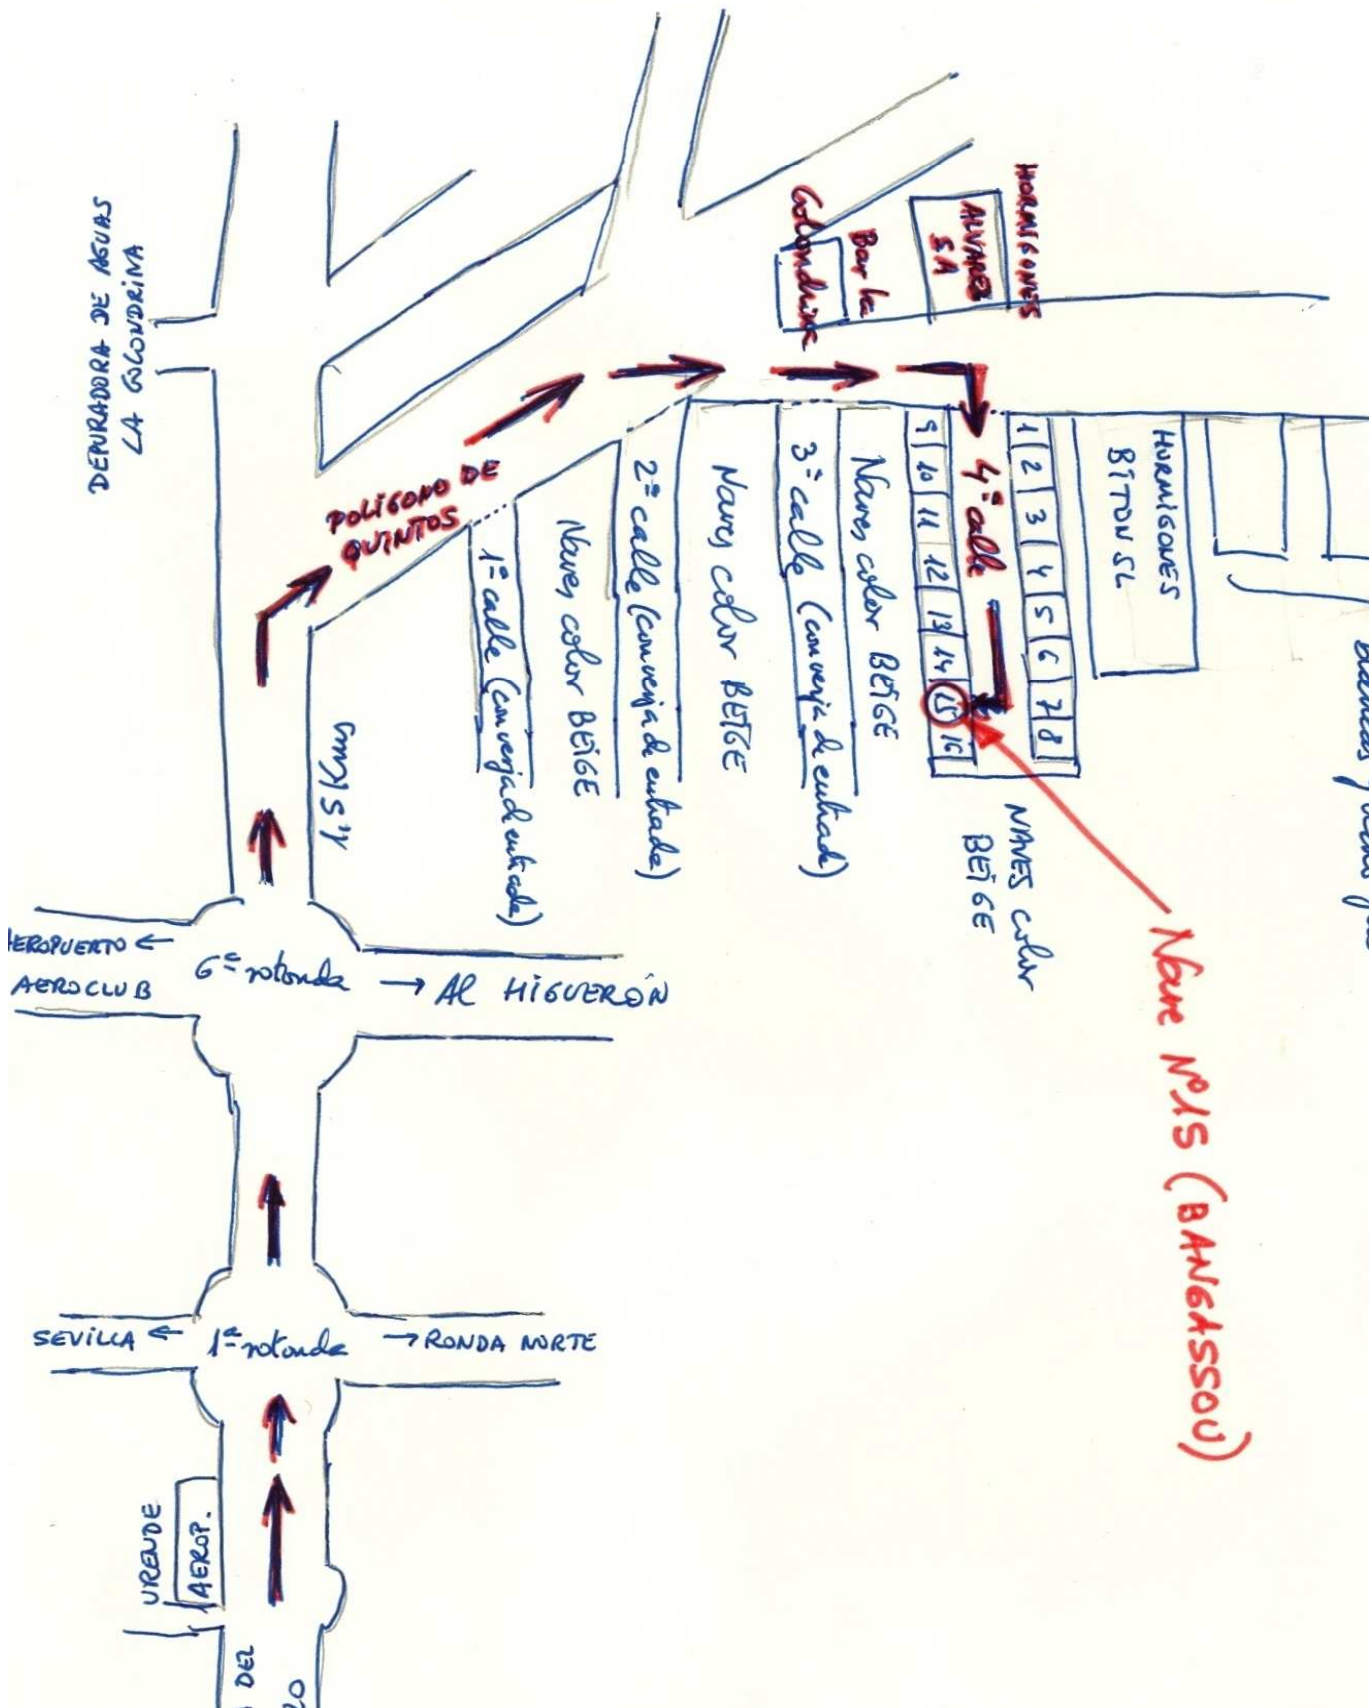 DEPURADORA DE AGUAS
LA GOLONDRINA
HORMIGONES
ALVAREZ
SA
Bar la
Golondrina
POLÍGONO DE
QUINTOS
1ª calle (con verja de entrada)
Naves color BEIGE
2ª calle (con verja de entrada)
Naves color BEIGE
3ª calle (con verja de entrada)
Naves color BEIGE
9 10 11 12 13 14 15 16
4ª calle
1 2 3 4 5 6 7 8
HORMIGONES
BITON SL
NAVES color
BEIGE
Nave Nº 15 (BANGASSOU)
EROPUERTO ←
AEROCLUB
6ª rotonda
→ Al HIGUERÓN
SEVILLA ←
1ª rotonda
→ RONDA NORTE
URENDE
AEROP.
DEL